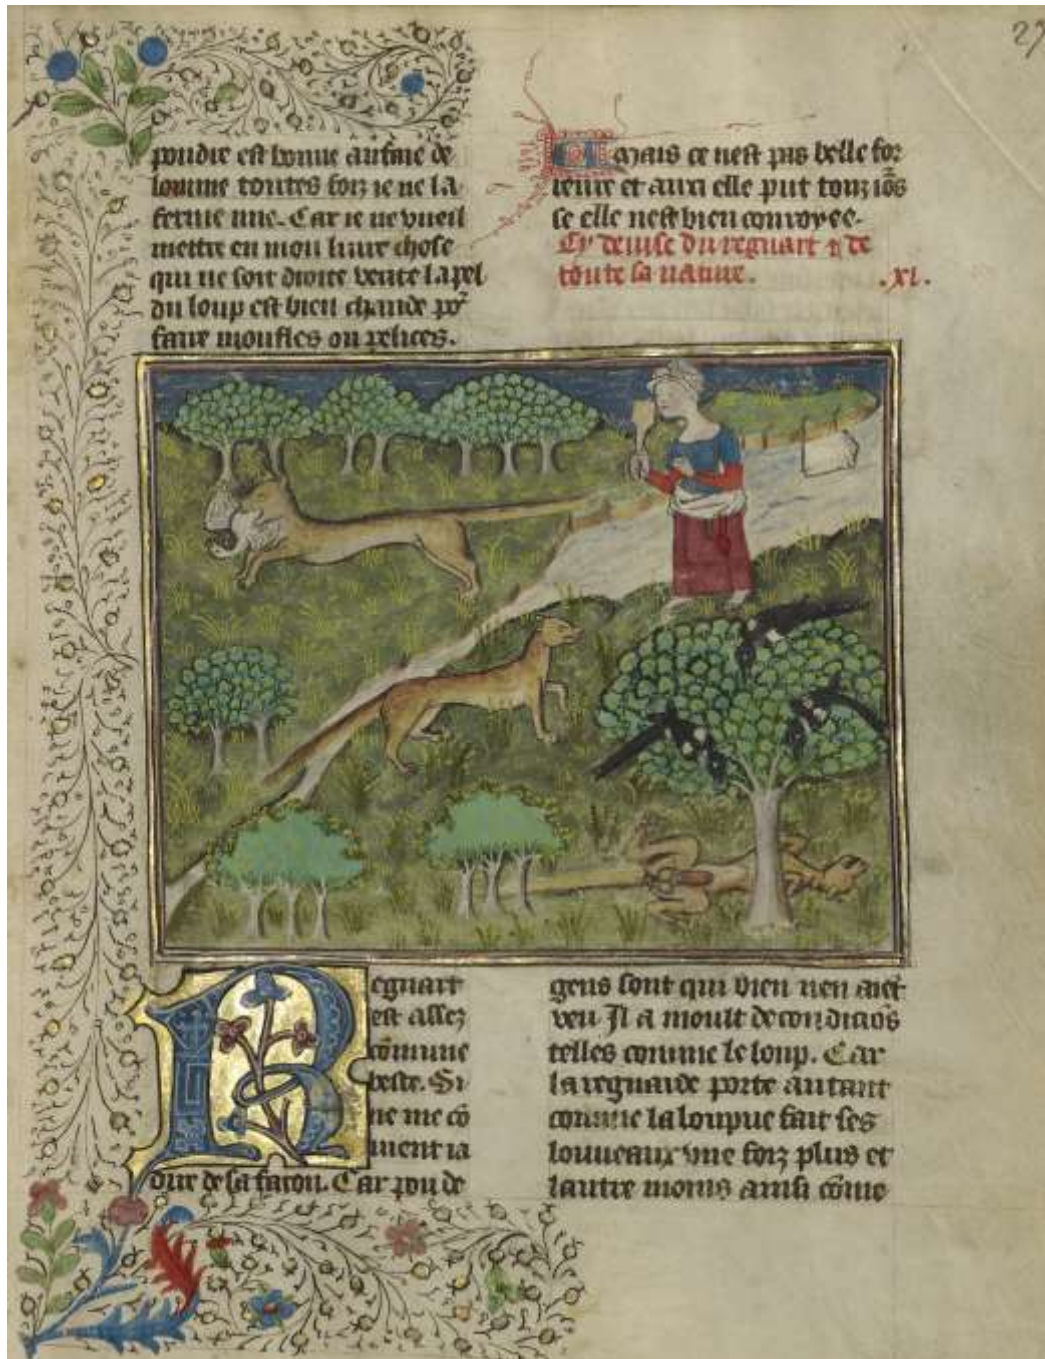 27
poudre est bonne aufme de
lomme toutes foiz ie ne la
ferme mie. Car ie ne vueil
mettre en mon liure chose
qui ne soit droite verite la pel
du loup est bien chaude po᷑
faire moufles ou pelices.
Mais ce nest pas belle for
reure et auxi elle put touz iō̄s
se elle nest bien conroyee.
Cy deuise du regnart ⁊ de
toute sa nature. .xi.
Regnart
est assez
cōmune
beste. Si
ne me cō
uient ia
dire de sa facon. Car pou de
gens sont qui bien nen aiēt
veu Il a moult de condiciōs
telles comme le loup. Car
la regnarde porte autant
comme la loupue fait ses
louueaux vne foiz plus et
lautre moins ainsi cōme